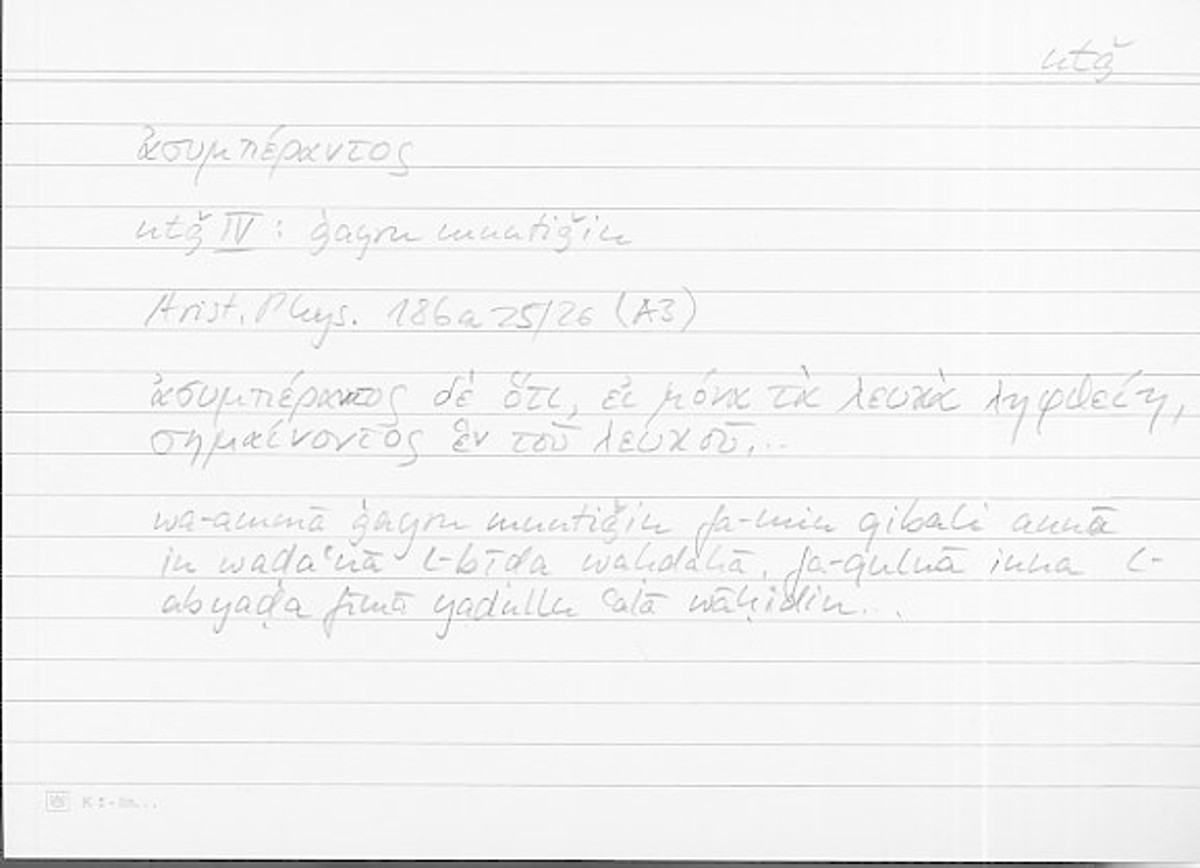 ntǧ
ἀσυμπέραντος
ntǧ IV : ġayru muntiǧin
Arist. Phys. 186a25/26 (A3)
ἀσυμπέραντος δὲ ὅτι, εἰ μόνα τὰ λευκὰ ληφθείη,
σημαίνοντος ἓν τοῦ λευκοῦ,...
wa-ammā ġayru muntiǧin fa-min qibali annā
in waḍaʿnā l-bīḍa waḥdahā, fa-qulnā inna l-
abyaḍa fīmā yadullu ʿalā wāḥidin...